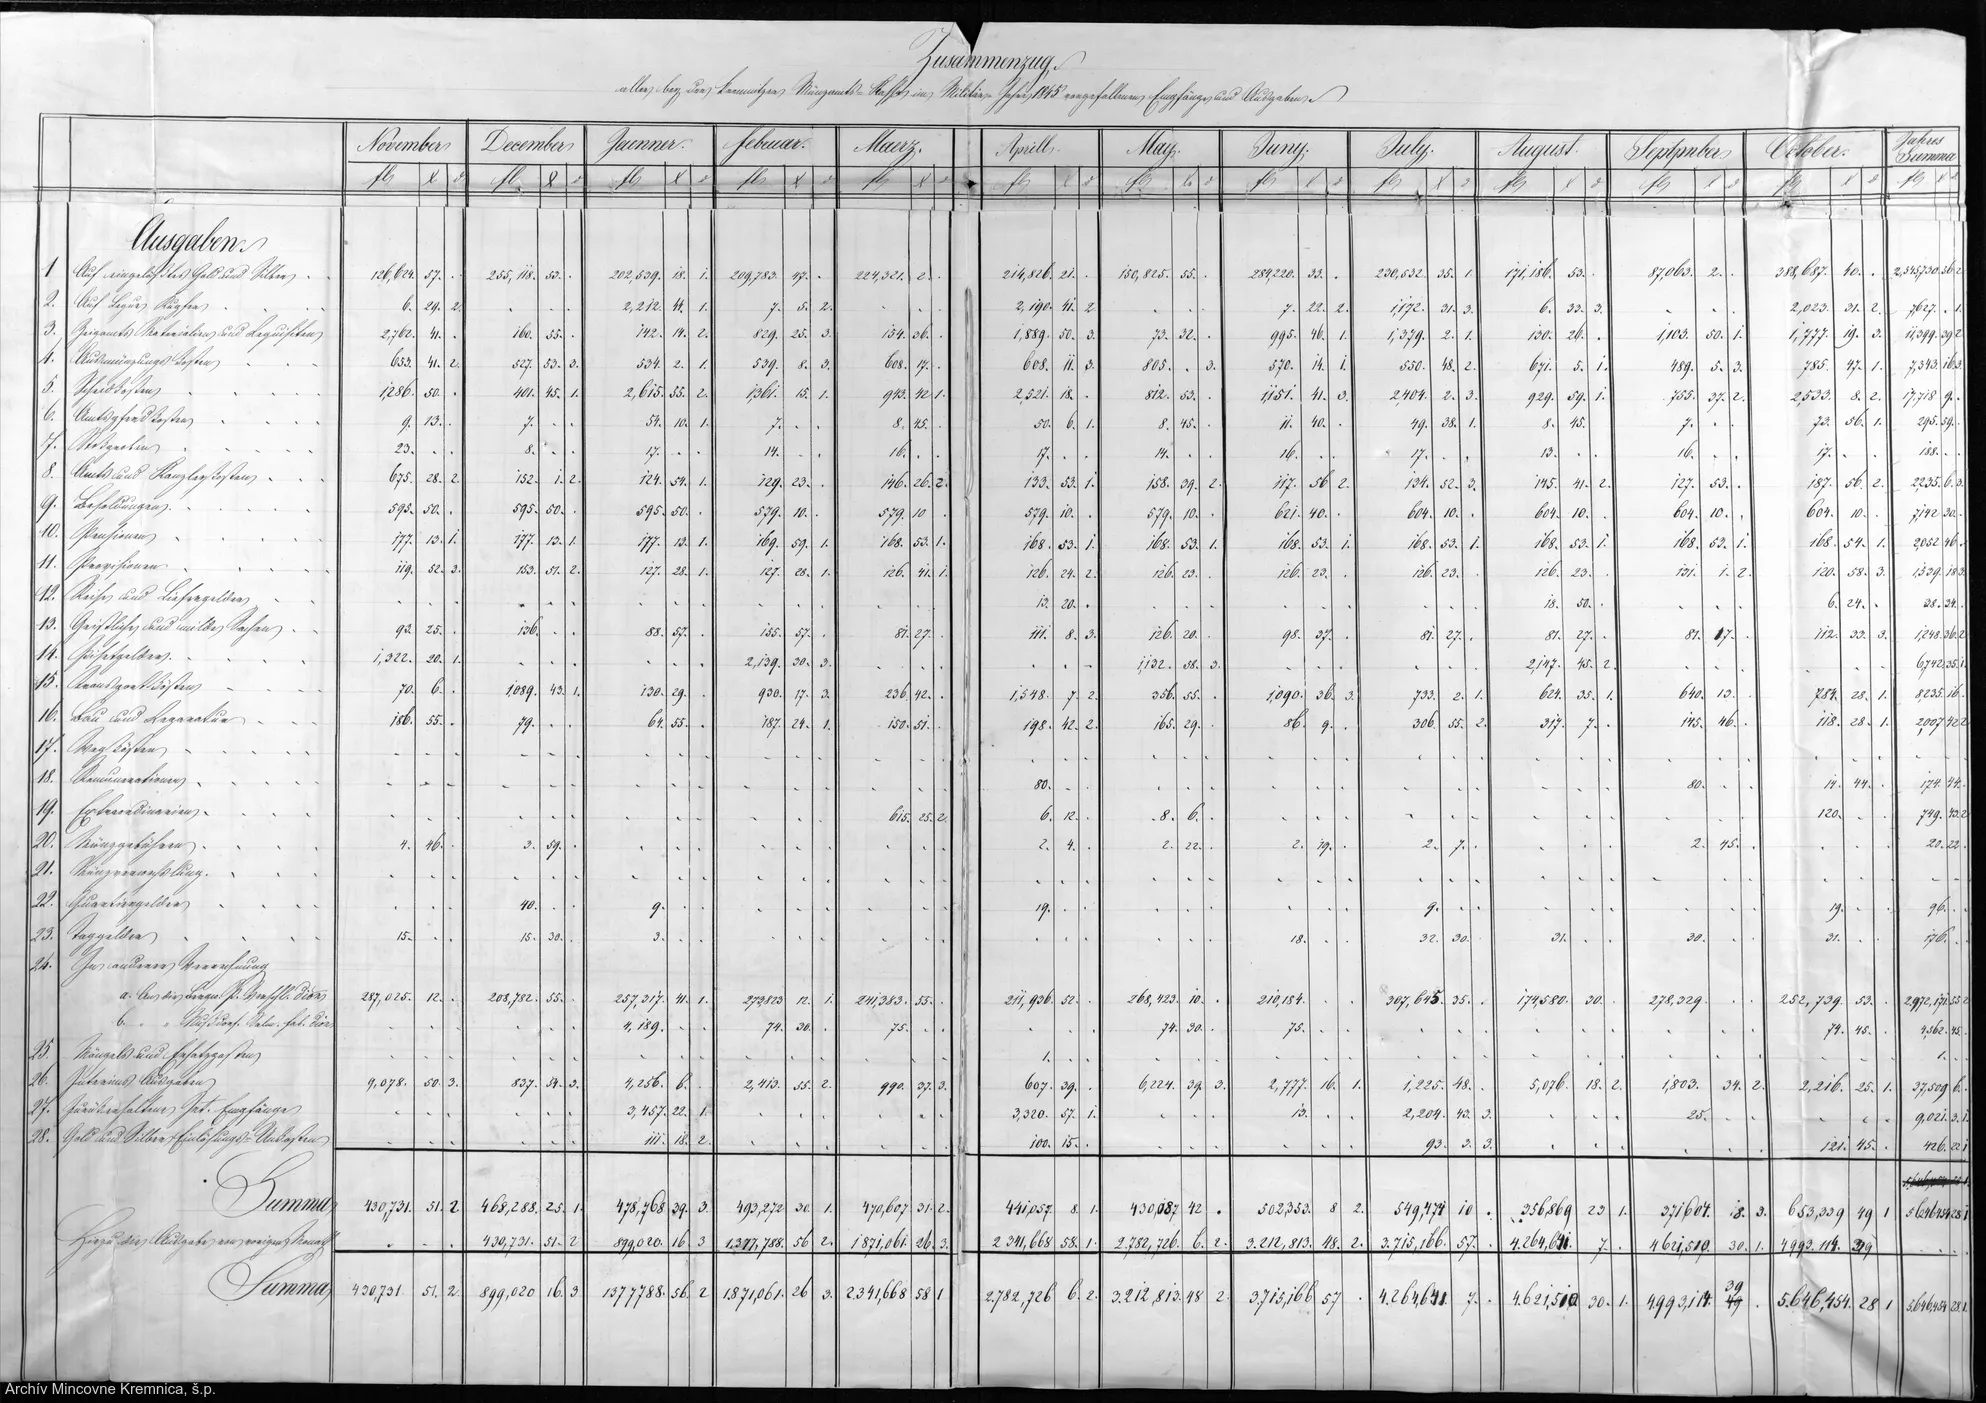 Zusammenzug
aller bey der Kremnitzer Münzamts-Kasse im Militär-Jahr 1845 vorgefallenen Empfänge und Ausgaben
November December Jaenner. Februar. Maerz. Aprill. May. Juny. July. August. September October. Jahres Summa
fl x d fl x d fl x d fl x d fl x d fl x d fl x d fl x d fl x d fl x d fl x d fl x d fl x d
Ausgaben
1 Auf eingelöstes Gold und Silber 126,624. 57. 255,118. 53. 202,539. 18. 1. 209,783. 47. 224,321. 2. 214,826. 21. 150,825. 55. 284,220. 33. 230,532. 35. 1. 171,186. 53. 87,063. 2. 388,687. 40. 2,545,730. 56. 2
2. Auf Kupfer 6. 29. 2. 2,212. 44. 1. 7. 5. 2. 2,190. 41. 2 7. 22. 2 1,172. 31. 3. 6. 33. 3. 2,023. 31. 2. 7,627. 1.
3. Zeugamts Materialien und Requisiten 2,762. 41. 160. 55. 142. 14. 2. 829. 25. 3. 154. 36. 1,889. 50. 3. 73. 32. 995. 46. 1. 1,379. 2. 1. 130. 26. 1,103. 50. 1. 1,777. 19. 3. 11,399. 39. 2
4. Ausmünzungs Kosten 653. 41. 2. 527. 53. 3. 534. 2. 1. 539. 8. 3. 608. 17. 608. 11. 3. 805. 3. 570. 14. 1. 550. 48. 2. 671. 5. 1. 489. 5. 3. 785. 47. 1. 7,343. 16. 3.
5. Scheidkosten 1,286. 50. 401. 45. 1. 2,615. 55. 2. 1,361. 15. 1. 943. 42. 1. 2,521. 18. 812. 53. 1,151. 41. 3. 2,404. 2. 3. 929. 59. 1. 755. 37. 2. 2,533. 8. 2. 17,718. 9.
6. Amtspferdkosten 9. 13. 7. 54. 10. 1. 7. 8. 45. 50. 6. 1. 8. 45. 11. 40. 49. 38. 1. 8. 45. 7. 73. 56. 1. 295. 59.
7. 23. 8. 17. 14. 16. 17. 14. 16. 17. 13. 16. 17. 188.
8. Amts und Kanzleykosten 675. 28. 2. 152. 1. 2. 124. 54. 1. 129. 23. 146. 26. 2. 133. 53. 1. 158. 39. 2 117. 56. 2. 134. 52. 3. 145. 41. 2 127. 53. 187. 56. 2. 2,235. 6. 3.
9. Besoldungen 595. 50. 595. 50. 595. 50. 579. 10. 579. 10 579. 10. 579. 10. 621. 40. 604. 10. 604. 10. 604. 10. 604. 10. 7,142. 30.
10. Pensionen 177. 13. 1. 177. 13. 1. 177. 13. 1. 169. 59. 1. 168. 53. 1. 168. 53. 1. 168. 53. 1. 168. 53. 1. 168. 53. 1. 168. 53. 1. 168. 53. 1. 168. 54. 1. 2,052. 46.
11. Provisionen 119. 52. 3. 153. 51. 2. 127. 28. 1. 127. 28. 1. 126. 41. 1. 126. 24. 2 126. 23. 126. 23. 126. 23. 126. 23. 131. 1. 2. 120. 58. 3. 1,539. 18. 3.
12. Reise und Liefergelder 13. 20. 18. 50. 6. 24. 38. 34.
13. Geistliche und milde Sachen 93. 25. 136. 88. 57. 155. 57. 81. 27. 111. 8. 3. 126. 20. 98. 37. 81. 27. 81. 27. 81. 27. 112. 33. 3. 1,248. 36. 2
14. 1,322. 20. 1. 2,139. 30. 3. 1,132. 58. 3. 2,147. 45. 2. 6,742. 35. 1.
15. Transport Kosten 70. 6. 1,089. 43. 1. 130. 29. 930. 17. 3. 236. 42. 1,548. 7. 2. 356. 55. 1,090. 36. 3. 733. 2. 1. 624. 35. 1. 640. 13. 784. 28. 1. 8,235. 16.
16. Bau und Reparatur 186. 55. 79. 64. 55. 187. 24. 1. 150. 51. 198. 42. 2. 165. 29. 86. 9. 306. 55. 2. 317. 7. 145. 46. 118. 28. 1. 2,007. 42. 2
17. Weg Kosten
18. Remunerationen 80. 80. 14. 44. 174. 44.
19. Extraordinarien 615. 25. 2. 6. 12. 8. 6. 120. 749. 43. 2
20. Münzgebühren 4. 46. 3. 59. 2. 4. 2. 22. 2. 19. 2. 7. 2. 45. 20. 22.
21. Münzverwechslung.
22. Quartiergelder 40. 9. 19. 9. 19. 96.
23. Taggelder 15. 15. 30. 3. 18. 32. 30. 31. 30. 31. 176.
24. In anderer Verrechnung
a. An die 287,025. 12. 208,782. 55. 257,317. 41. 1. 273,823 12. 1. 241,383. 55. 211,936. 52. 268,423. 10. 210,184. 307,645. 35. 174,580. 30. 278,329. 252,739. 53. 2,972,171. 55. 2
b. 4,189. 74. 30. 75. 74. 30. 75. 74. 45. 4,562. 45.
25. Mängels und Ersatzposten 1. 1.
26. Interims Ausgaben 9,078. 50. 3. 837. 54. 3. 4,256. 6. 2,413. 55. 2. 990. 37. 3. 607. 39. 6,224. 39. 3. 2,777. 16. 1. 1,225. 48. 5,076. 18. 2. 1,803. 34. 2. 2,216. 25. 1. 37,509. 6.
27. Empfänge 3,457. 22. 1. 3,320. 57. 1. 13. 2,204. 43. 3. 25. 9,021. 3. 1.
28. Gold und Silber Einlösungs-Unkosten 111. 18. 2. 100. 15. 93. 3. 3. 121. 45. 426. 22. 1
Summa 430,731. 51. 2 468,288. 25. 1. 478,768 39. 3. 493,272 30. 1. 470,607 31. 2. 441,057 8. 1. 430,087 42 502,353. 8 2. 549,474 10 356,869 23 1. 371604. 18. 3. 653,339 49 1 5,646454 28 1
Hiezu die Ausgabe vom vorigen Monat 430,731. 51. 2 899,020. 16. 3 1,377,788. 56 2. 1871,061. 26. 3. 2341,668 58. 1. 2.782,726. 6. 2. 3.212,813. 48. 2. 3.715,166. 57. 4.264,641. 7. 4621,510. 30. 1. 4993.114. 39
Summa 430,731. 51. 2. 899,020 16. 3 1377788. 56. 2 1.871,061. 26 3. 2.341,668 58 1 2.782,726 6. 2. 3.212,813. 48 2. 3.715,166 57 4.264,641 7. 4.621,510 30. 1. 4.993,114. 39 5.646,454. 28 1 5,646,454 28 1.
Archív Mincovne Kremnica, š.p.